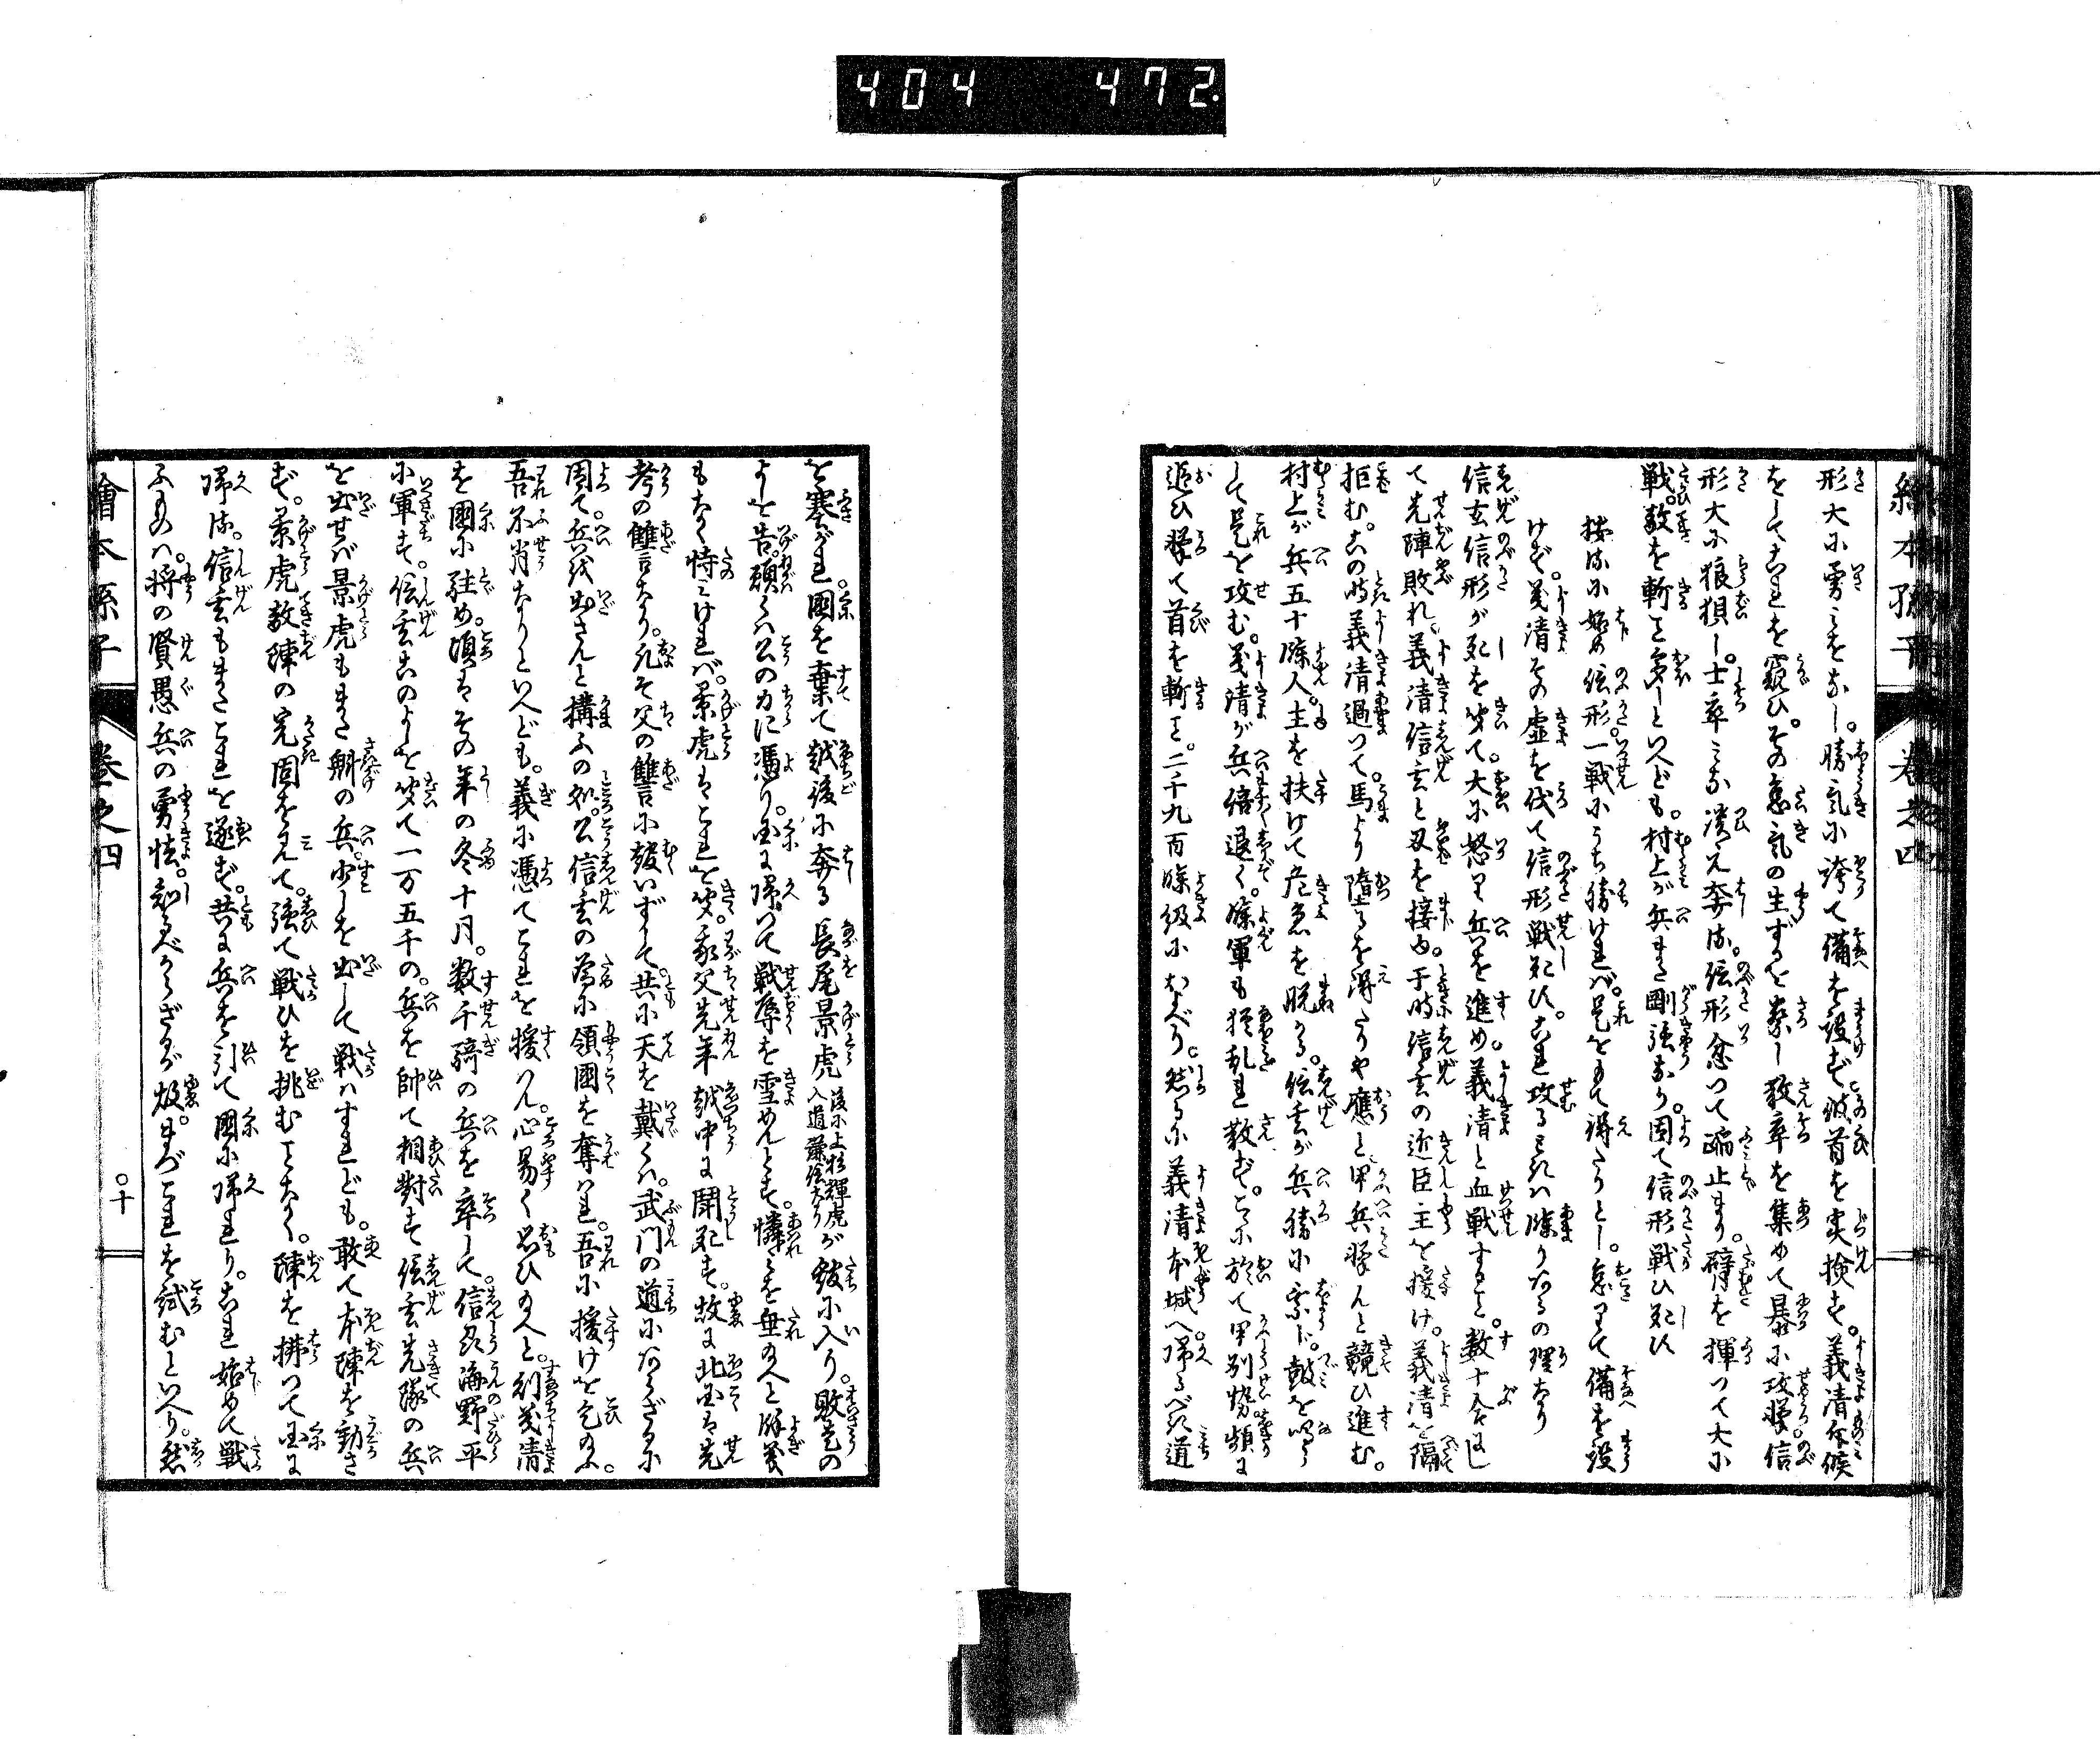 404 472
繪本孫子 巻之四
形大に勇をなし。勝気に誇て備を設ず彼首を実検す。義清斥候
をしてこれを窺ひ。その怠気の生ずるを察し散卒を集めて暴に攻撃信
形大に狼狽し。士卒みな潰え奔る。信形忿つて踏止まり。臂を揮つて大に
戦。敵を斬こと多しといへども。村上が兵また剛強なり。因て信形戦ひ死す
按るに始め信形。一戦にうち勝ければ。是をもて得たりとし。怠りて備を設
けず。義清その虚を伐て信形戦死す。これ攻るときは餘りあるの理なり
信玄信形が死を聞て。大に怒り兵を進め。義清と血戦すること。数十合にし
て先陣敗れ。義清信玄と刃を接ゆ。于時信玄の近臣主を援け。義清を隔
拒む。この時義清過つて。馬より墮るを得たりや應と甲兵撃んと競ひ進む。
村上が兵五十餘人。主を扶けて危急を脱る。信玄が兵勝に乗じ。鼓を鳴ら
して是を攻む。義清が兵倍退く。餘軍も擾乱れ散ず。こゝに於て甲別勢。頻に
追ひ撃て首を斬こと。二千九百餘級におよべり。然るに義清本城へ帰るべき道
を塞がれ。國を棄て越後に奔る 長尾景虎 後に上杉輝虎入道謙信なり が舘に入り。敗走の
よしを告。願くは公の力に憑り。国に帰つて戦辱を雪めんとす。憐みを垂給へと餘義
もなく恃みければ。景虎はこれを聞。我父先年越中に闘死す。故に此国は先
考の讐言なり。凡そ父の讐言に報いずして。共に天を戴くは。武門の道にあらざるに
因て。兵を出さんと構ふの処。公信玄の為に領國を奪はれ。吾に援けを乞給ふ。
吾不肖なりといへども。義に憑てこれを援くべし。心易く思ひ給へと。則義清
を國に駐め。頃はその年の冬十月。数千騎の兵を率して。信州海野平
に軍す。信玄このよしを聞て一万五千の。兵を帥て相對す信玄先隊の兵
を出せば景虎もまた斛の兵。少しを出して戦はすれども。敢て本陣を動さ
ず。景虎敵陣の完固をみて。強て戦ひを挑むことなく。陣を拂つて国に
帰る。信玄もまたこれを逐ず。共に兵を引て國に帰れり。これ始めて戦
ふものは。将の賢愚兵の勇怯。知るべからざるが故。まづこれを試むといへり。然
繪本孫子 巻之四 〇十